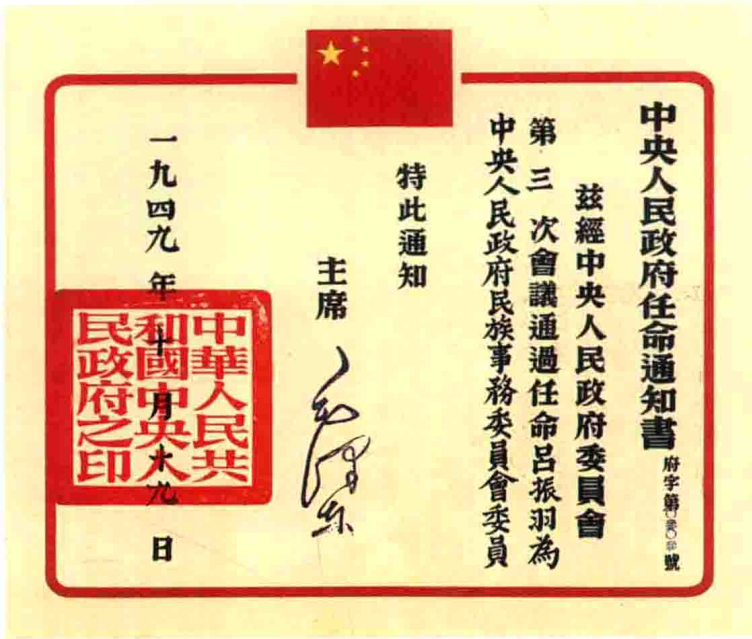 中央人民政府任命通知書
府字第號
兹經中央人民政府委員會
第三次會議通過任命呂振羽為
中央人民政府民族事務委員會委員
特此通知
主席
毛澤东
一九四九年十月十九日
中華人民共
和國中央人
民政府之印